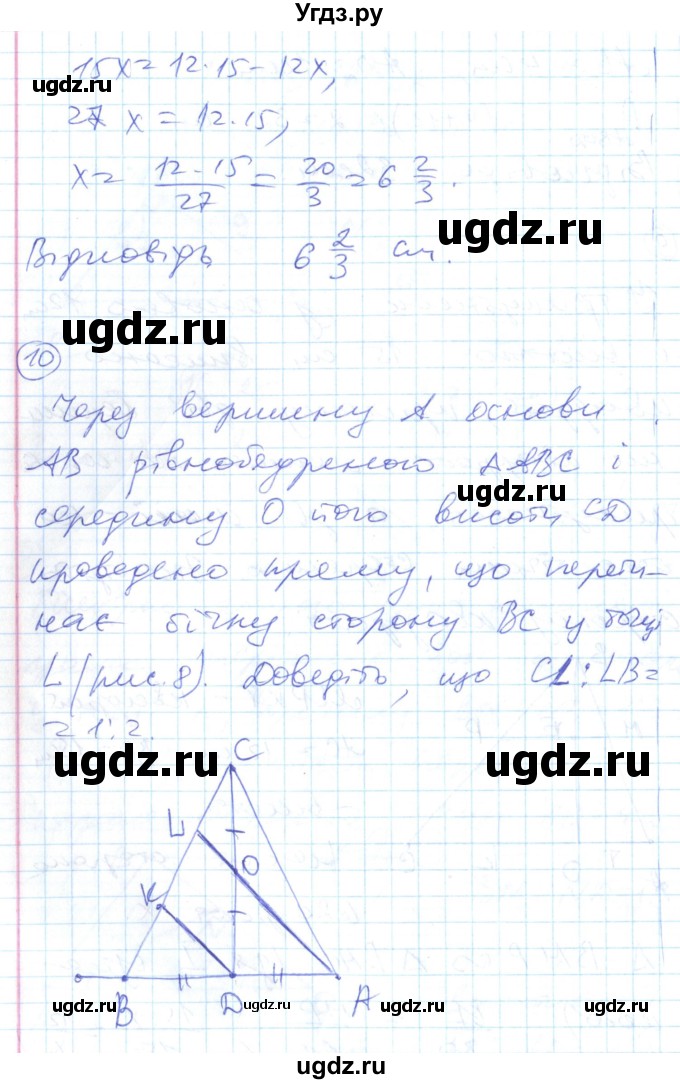 Угдз.ру
15x = 12·15 - 12x,
27 x = 12·15,
x = 12-15/27 = 20/3 = 6 2/3.
Відповідь 6 2/3 см.
10
Через вершину A основи
AB рівнобедреного ΔABC і
середину O його висоти CD
проведено пряму, що перети-
нає бічну сторону BC у точці
L (рис. 8). Доведіть, що CL : LB =
= 1 : 2.
C
L
O
K
B D A
ugdz.ru
ugdz.ru
ugdz.ru
ugdz.ru
ugdz.ru
ugdz.ru
ugdz.ru
ugdz.ru
ugdz.ru
ugdz.ru
ugdz.ru